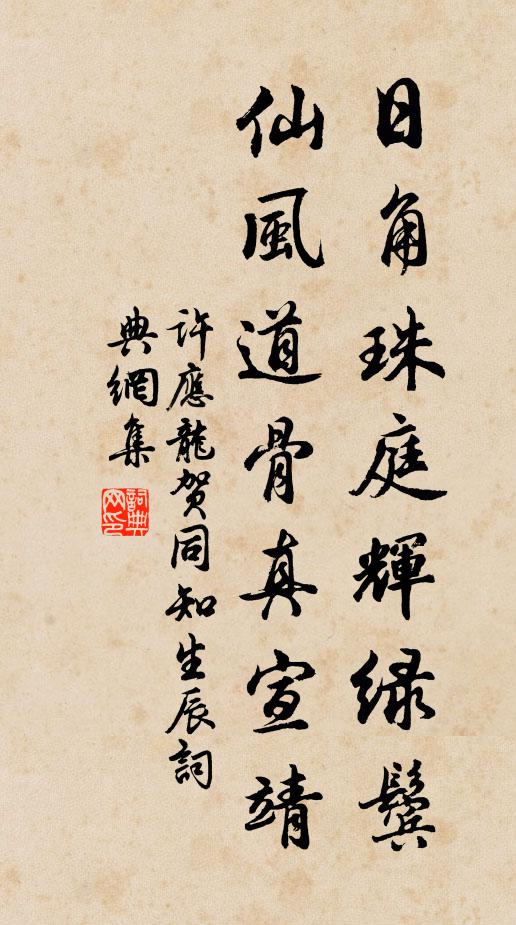 日角珠庭輝緑鬓
仙風道骨真宣靖
許應龍賀同知生辰詞
典網集
詞典
网印